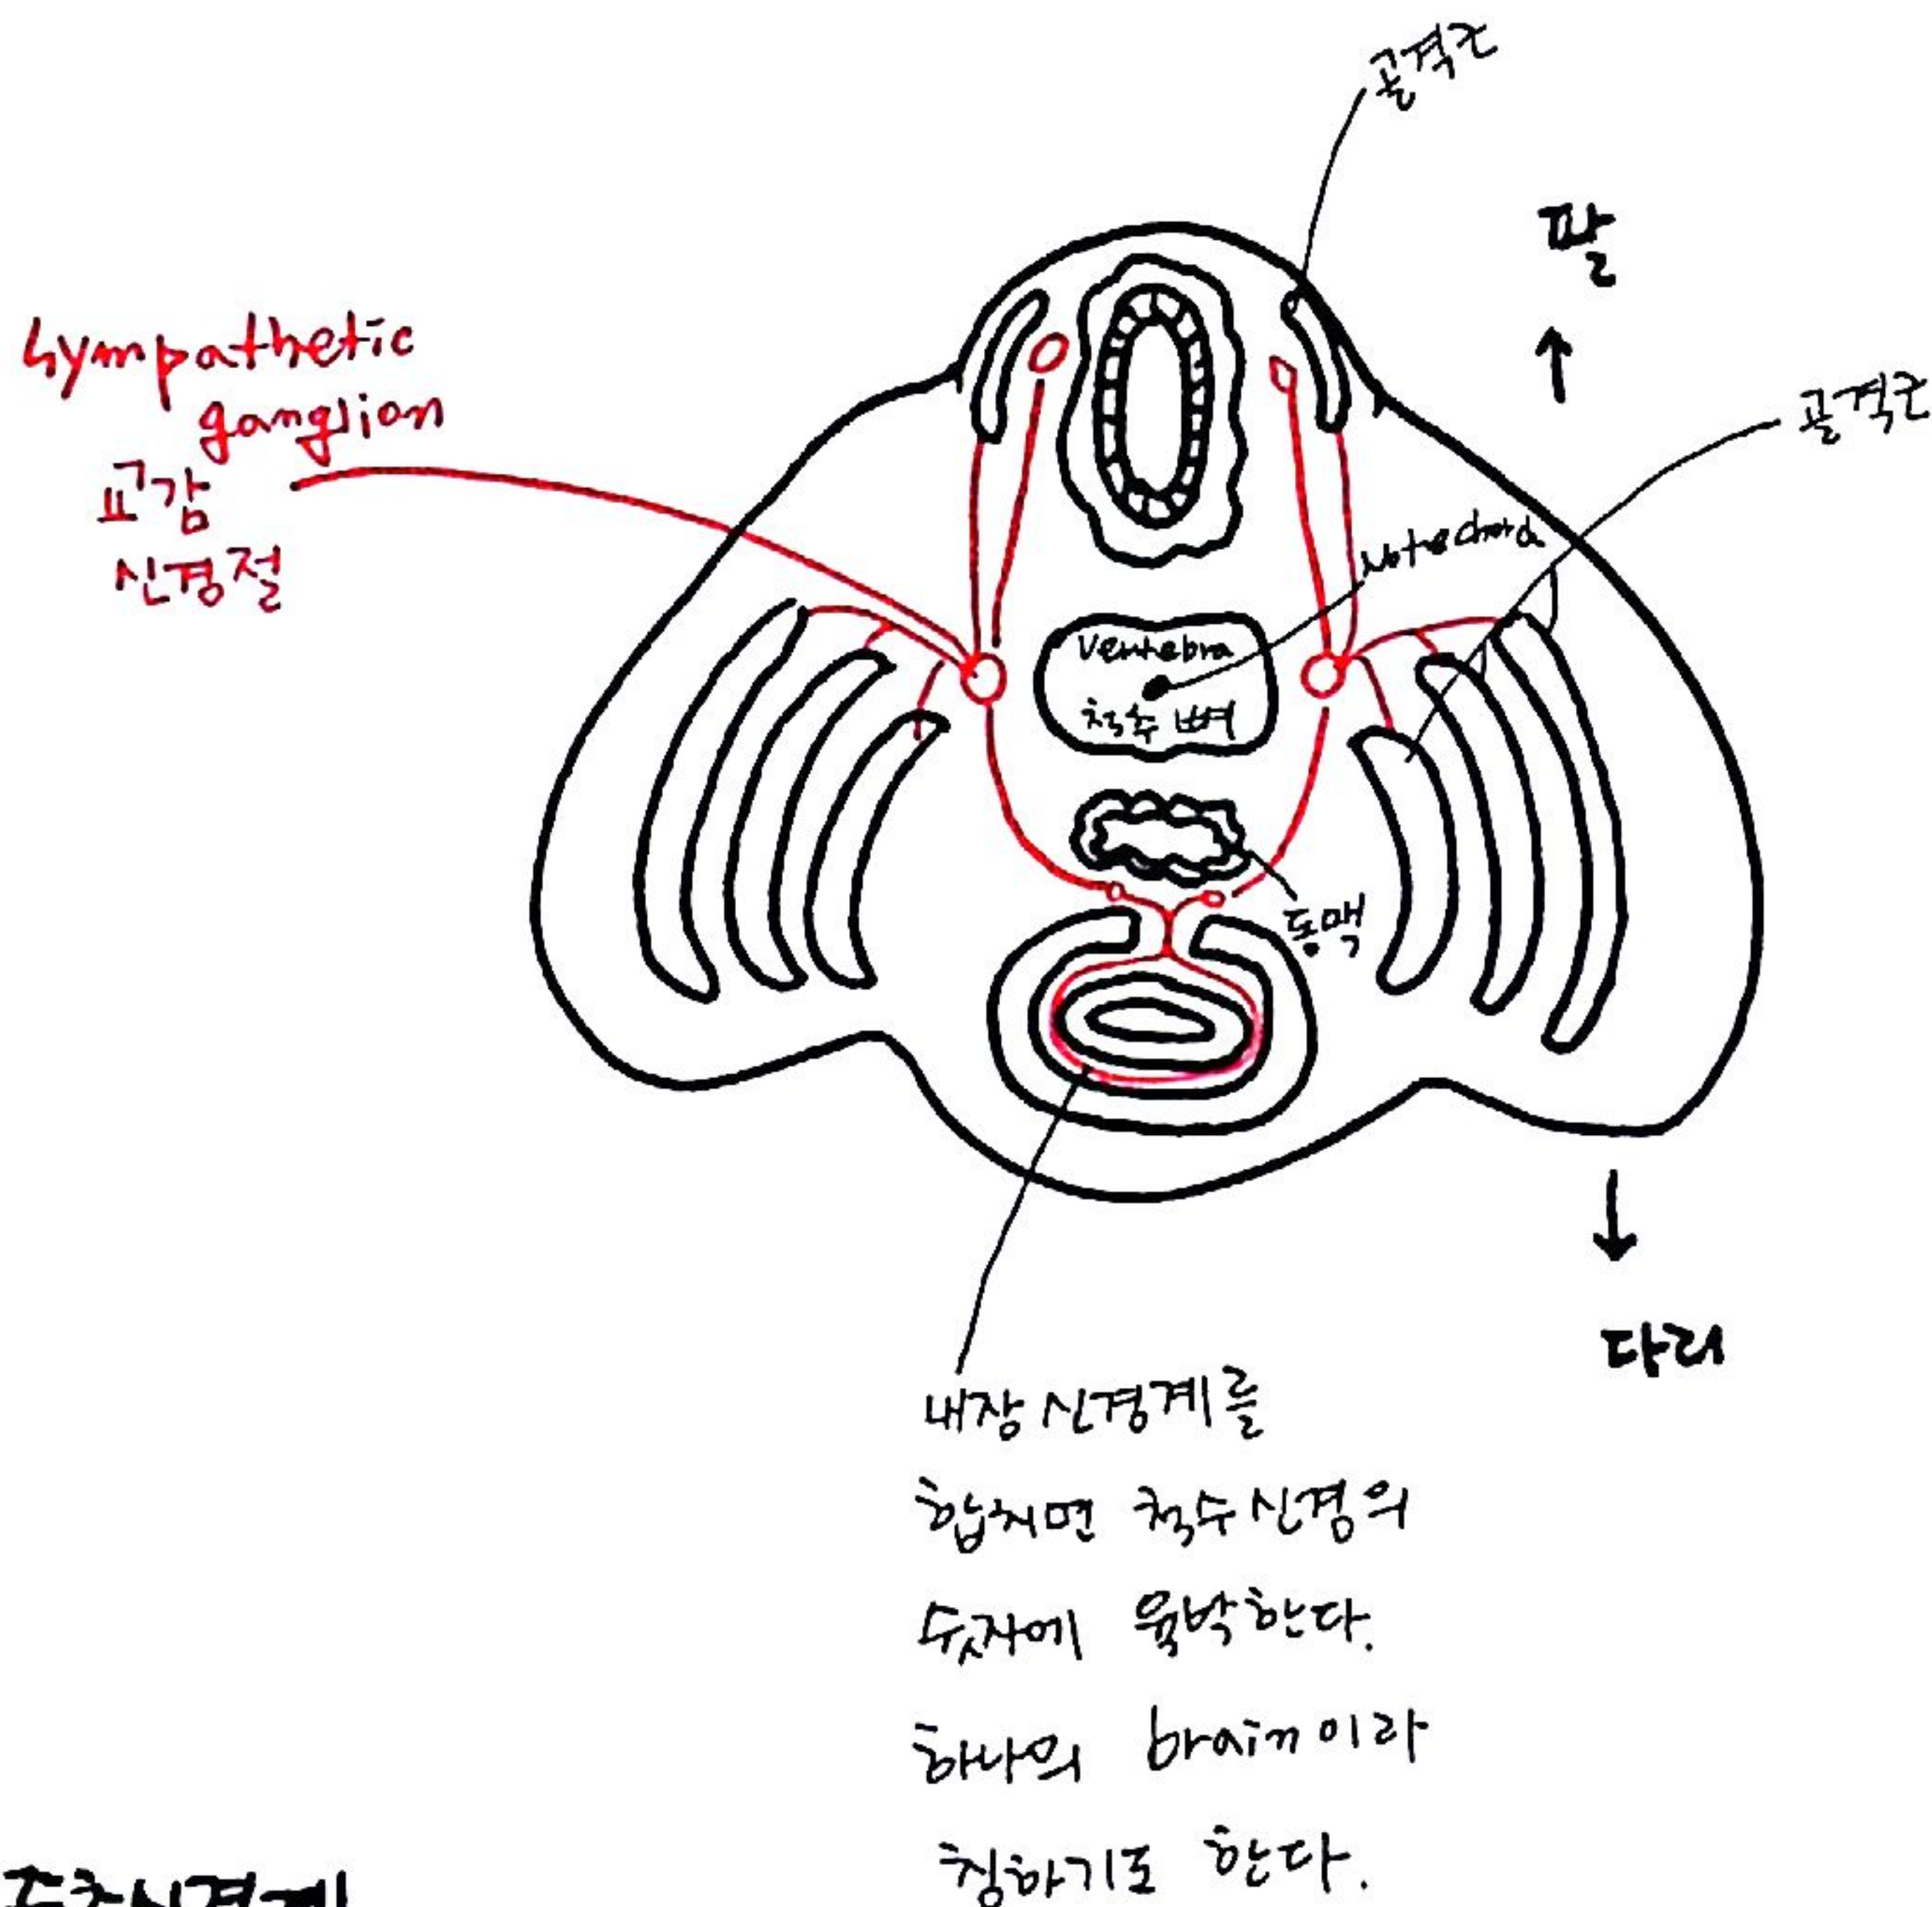 골격근
팔
↑
Sympathetic
ganglion
교감
신경절
골격근
Notochord
Ventebra
척추 뼈
동맥
↓
다리
내장 신경계를
합치면 척수신경의
숫자에 육박한다.
하나의 brain이라
칭하기도 한다.